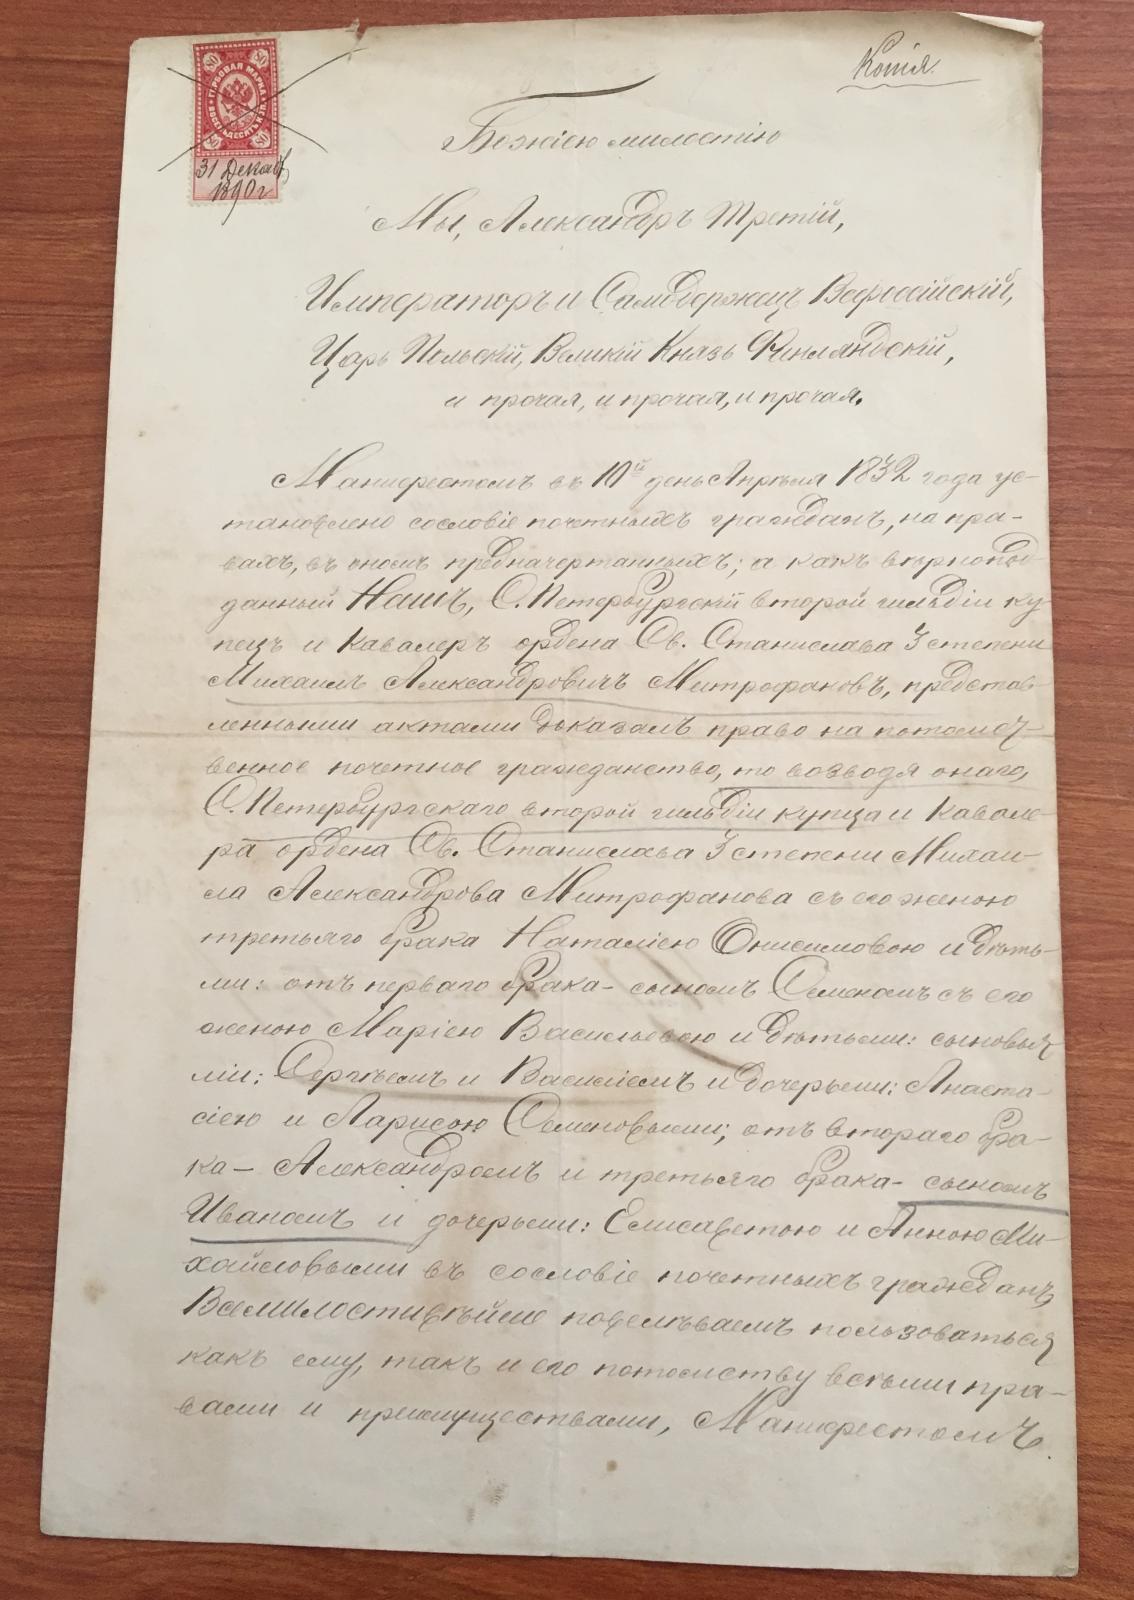 Копія
80 80
ГЕРБОВАЯ МАРКА
ВОСЕМЬДЕСЯТЬ К.
80 80
31 Декаб
1890 г
Божіею милостію
Мы, Александръ Третій,
Императоръ и Самодержецъ Всероссійскій,
Царь Польскій, Великій Князь Финляндскій,
и прочая, и прочая, и прочая.
Манифестомъ въ 10й день Апрѣля 1832 года ус-
тановлено сословіе почетныхъ гражданъ, на пра-
вахъ, въ ономъ предначертанныхъ; а какъ вѣрнопод-
данный Нашъ, С. Петербургскій второй гильдіи ку-
пецъ и Кавалеръ ордена Св. Станислава 3 степени
Михаилъ Александровичъ Митрофановъ, представ-
ленными актами доказалъ право на потомст-
венное почетное гражданство, то возводя онаго,
С. Петербургскаго второй гильдіи купца и Кавале-
ра ордена Св. Станислава 3 степени Михаи-
ла Александрова Митрофанова съ его женою
третьяго брака Наталіею Онисимовою и дѣть-
ми: отъ перваго брака - сыномъ Семеномъ съ его
женою Маріею Васильевою и дѣтьми: сыновья-
ми: Сергѣемъ и Василіемъ и дочерьми: Анаста-
сіею и Ларисою Семеновыми; отъ втораго бра-
ка - Александромъ и третьяго брака - сыномъ
Иваномъ и дочерьми: Елисаветою и Анною Ми-
хайловыми въ сословіе почетныхъ гражданъ,
Всемилостивѣйше повелѣваемъ пользоваться
какъ ему, такъ и его потомству всѣми пра-
вами и преимуществами, Манифестомъ